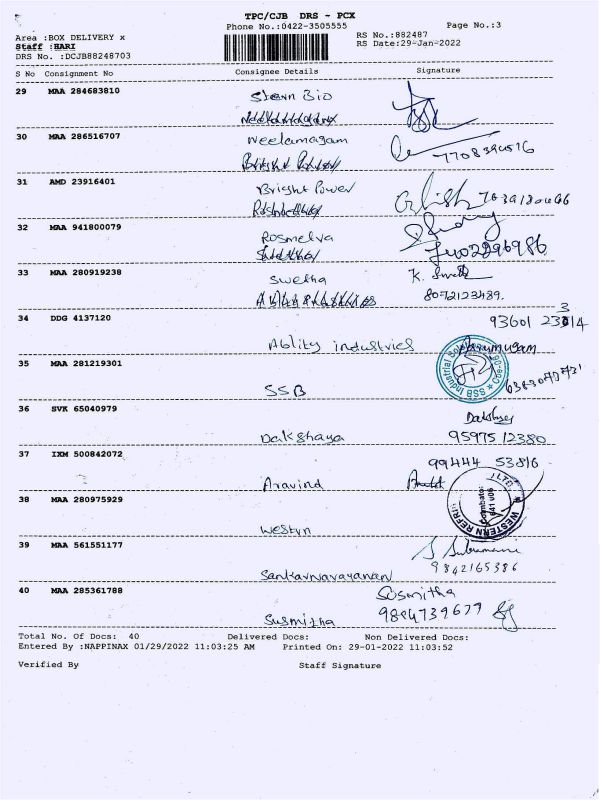 TPC/CJB DRS - PCX
Phone No.:0422-3505555 Page No.:3
Area :BOX DELIVERY x RS No.:882487
Staff :HARI RS Date:29-Jan-2022
DRS No. :DCJB88248703
S No Consignment No Consignee Details Signature
29 MAA 284683810
Stern Bio
30 MAA 286516707
Neelamagam
31 AMD 23916401
Bright Power
32 MAA 941800079
Rosmelva
33 MAA 280919238 K. Swetha
Swetha 8072123489.
34 DDG 4137120
Ability industries Arumugam
35 MAA 281219301
SSB
36 SVK 65040979
Dakshaya 95975 12380
37 IXM 500842072 99444 53816
Aravind
38 MAA 280975929
Westyn WESTERN REFRI
39 MAA 561551177
Sankarnarayanan 9842165386
40 MAA 285361788 Susmitha
Susmitha 9884739677
Total No. Of Docs: 40 Delivered Docs: Non Delivered Docs:
Entered By :NAPPINAX 01/29/2022 11:03:25 AM Printed On: 29-01-2022 11:03:52
Verified By Staff Signature